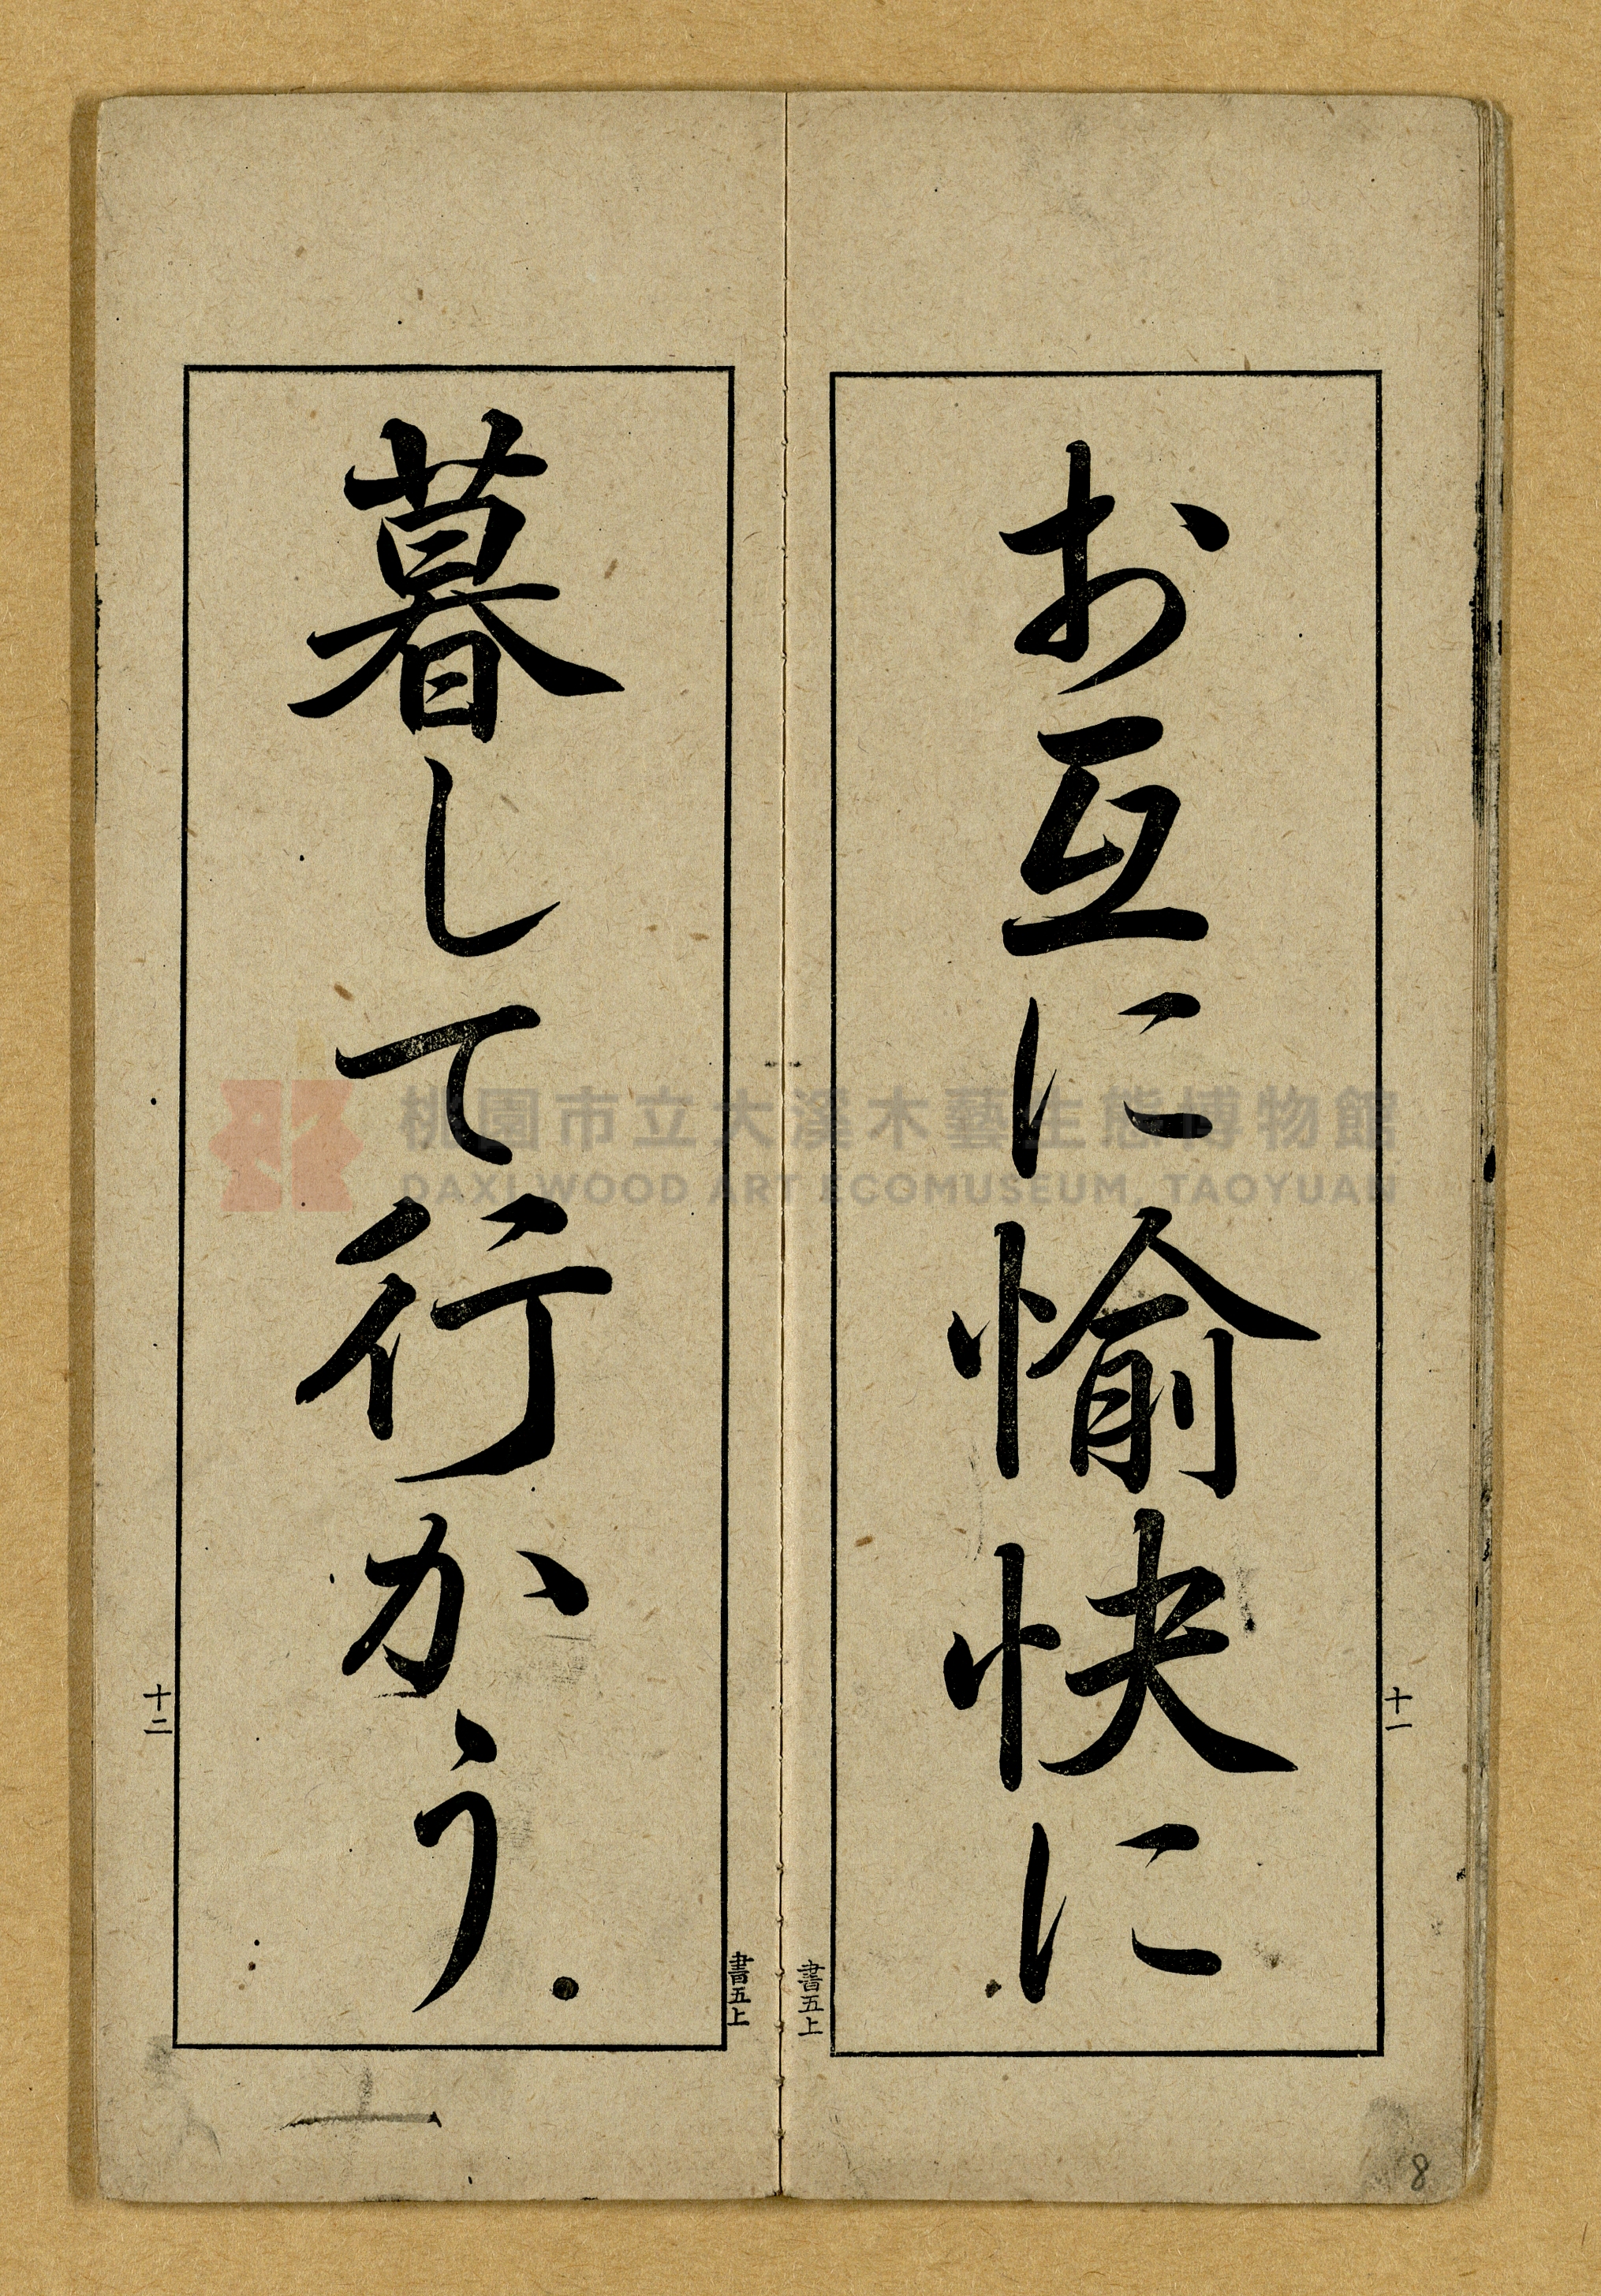 お互に愉快に
十一
書五上
暮して行かう.
十二
書五上
8
桃園市立大溪木藝生態博物館
DAXI WOOD ART ECOMUSEUM, TAOYUAN